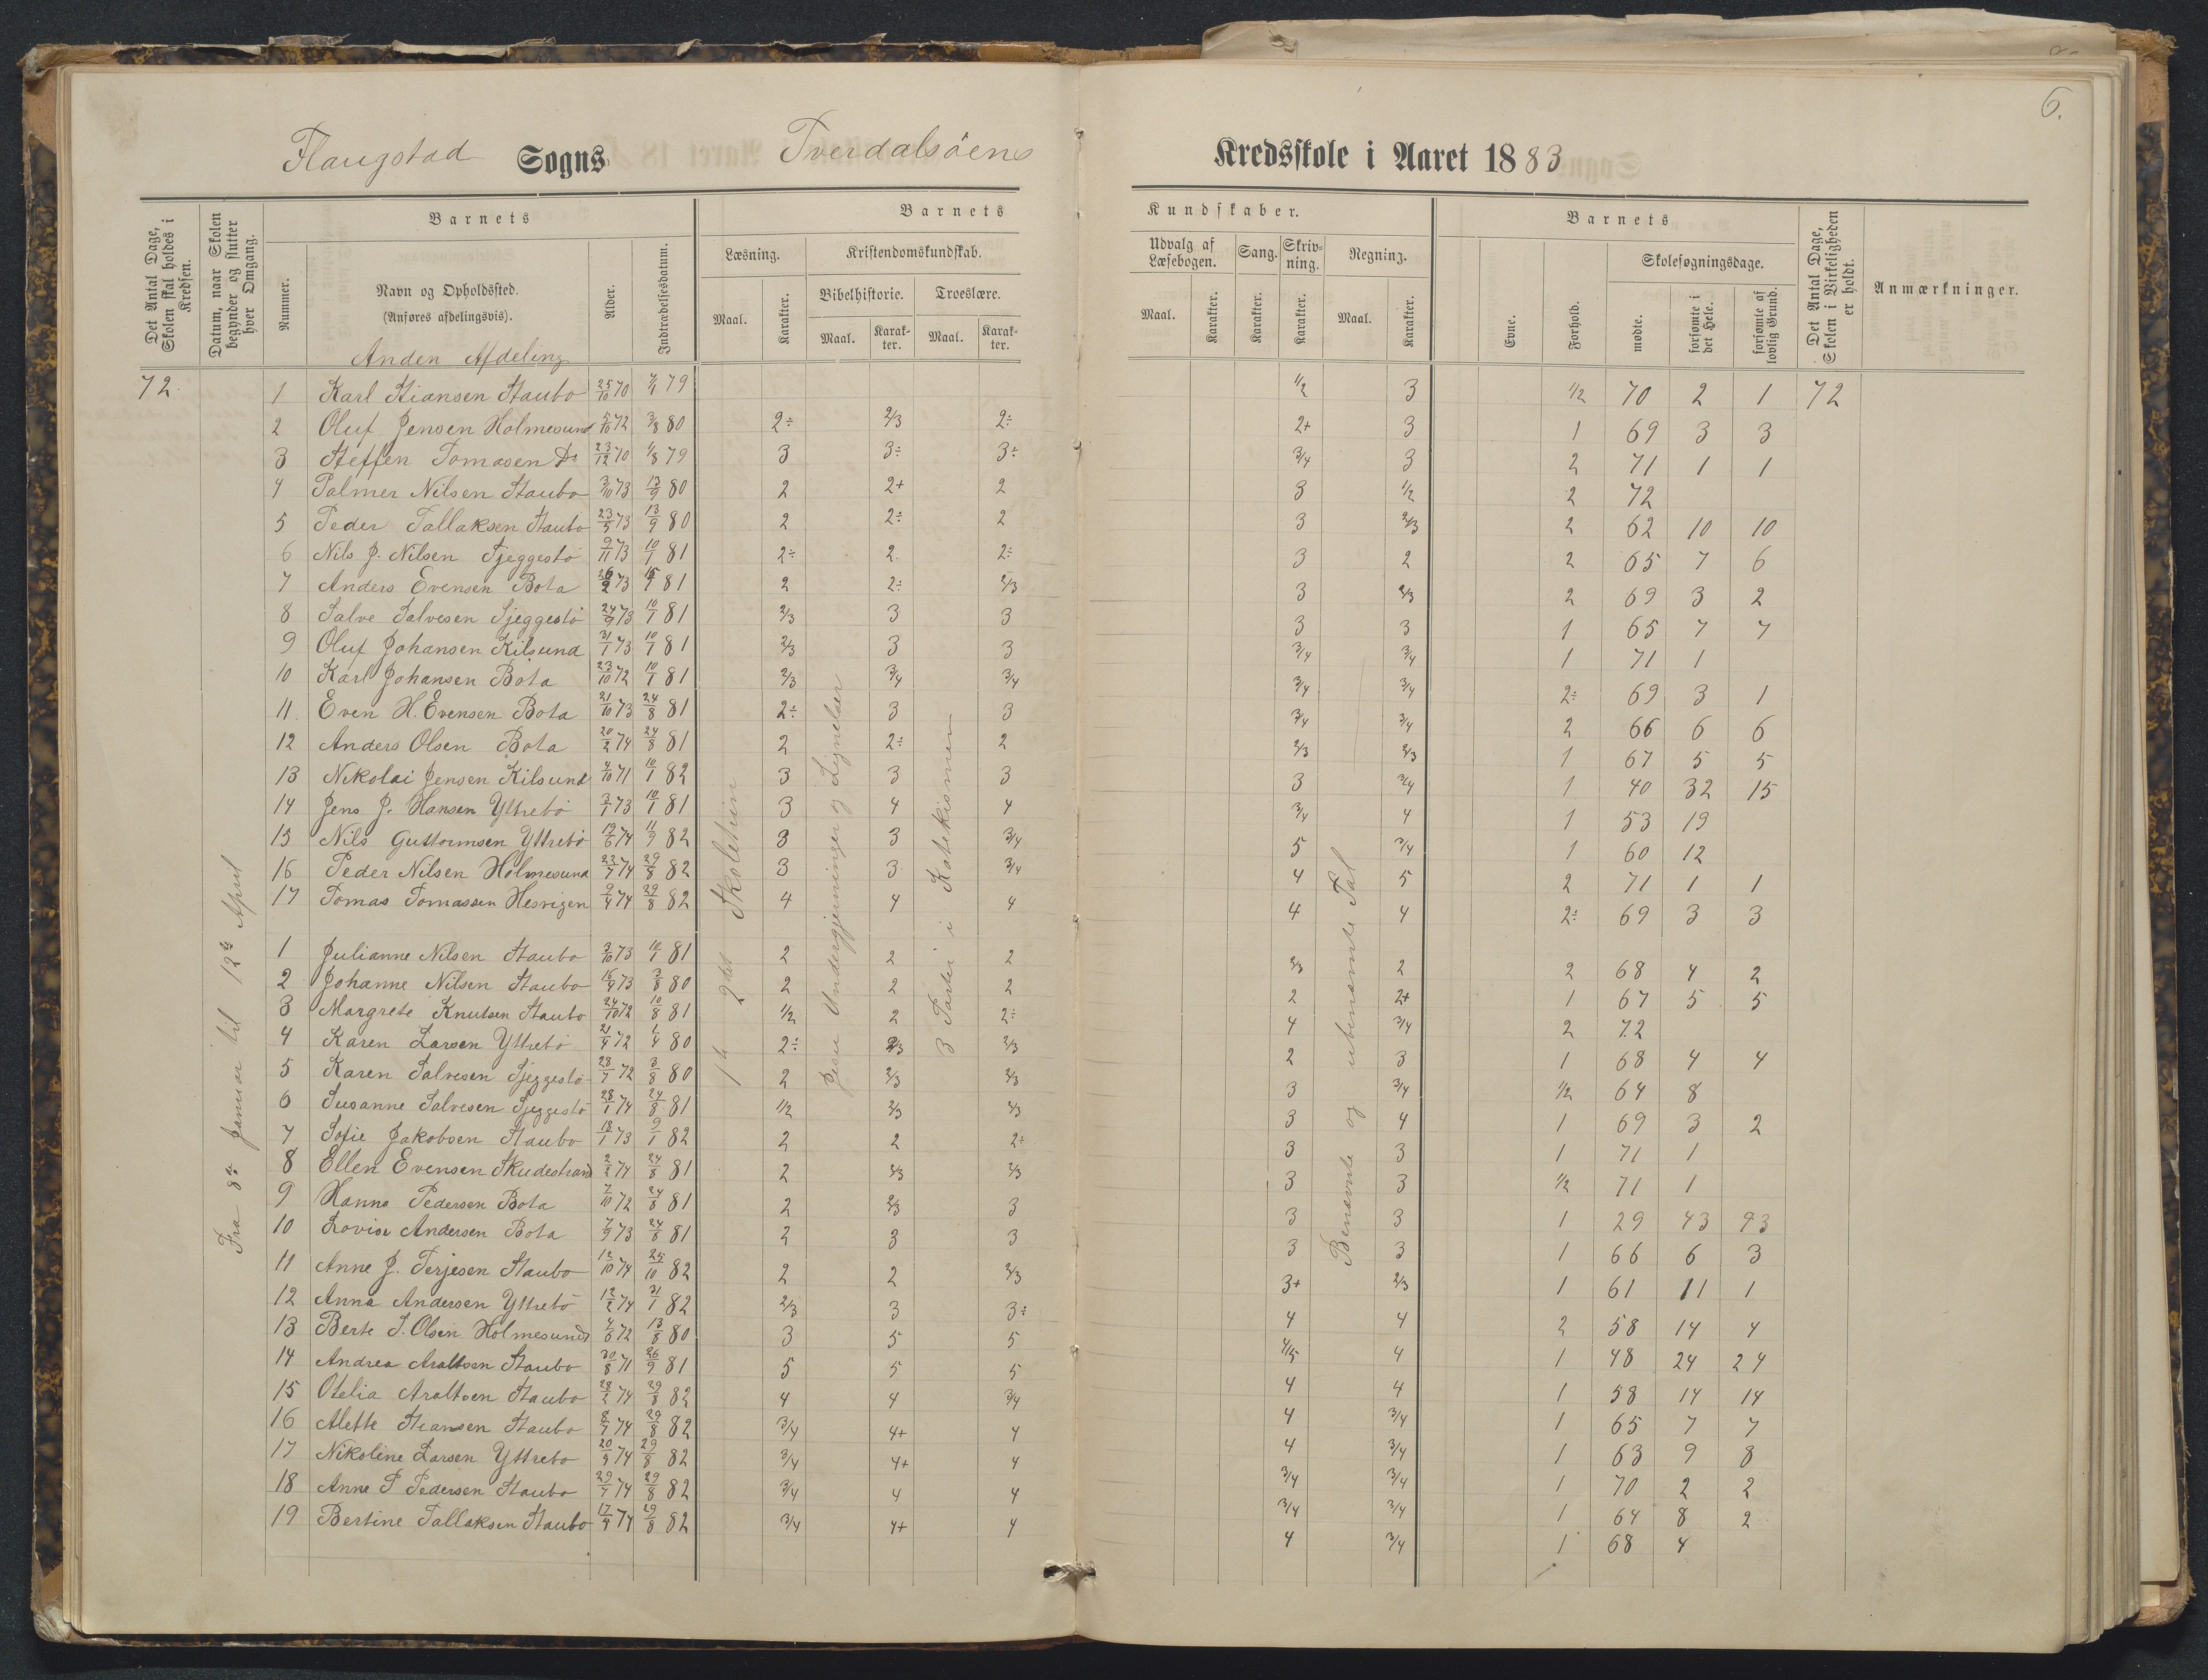 6.
Flaugstad Sogns Tverdalsöens Kredsskole i Aaret 1883
Det Antal Dage, Skolen skal holdes i Kredsen.
Datum, naar Skolen begynder og slutter hver Omgang.
Barnets
Nummer.
Navn og Opholdssted.
(Anføres afdelingsvis).
Alder.
Indtrædelsesdatum.
Barnets Kundskaber.
Læsning.
Maal. Karakter.
Kristendomskundskab.
Bibelhistorie. Troeslære.
Maal. Karakter. Maal. Karakter.
Udvalg af Læsebogen.
Maal. Karakter.
Sang.
Karakter.
Skrivning.
Karakter.
Regning.
Maal. Karakter.
Barnets
Evne. Forhold.
Skolesøgningsdage.
mødte. forsømte i det Hele. forsømte af lovlig Grund.
Det Antal Dage, Skolen i Virkeligheden er holdt.
Anmærkninger.
Anden Afdeling
72. 1 Karl Stiansen Staubo 25/10 70 7/1 79 1/2 3 1/2 70 2 1 72
2 Oluf Jensen Holmesund 5/10 72 3/8 80 2÷ 2/3 2÷ 2+ 3 1 69 3 3
3 Steffen Tomasen Do 23/12 70 1/8 79 3 3÷ 3÷ 3/4 3 2 71 1 1
4 Palmer Nilsen Staubo 3/10 73 13/9 80 2 2+ 2 3 1/2 2 72
5 Peder Tallaksen Staubo 23/5 73 13/9 80 2 2÷ 2 3 2/3 2 62 10 10
6 Nils J. Nilsen Sjeggestö 9/11 73 10/1 81 2÷ 2 2÷ 3 2 2 65 7 6
7 Anders Evensen Bota 26/2 73 81 2 2÷ 2/3 3 2/3 2 69 3 2
8 Salve Salvesen Sjeggestö 24/9 73 10/1 81 2/3 3 3 3 3 1 65 7 7
9 Oluf Johansen Kilsund 31/1 73 10/1 81 2/3 3 3 3/4 3/4 1 71 1
10 Karl Johansen Bota 23/10 72 10/1 81 2/3 3/4 3/4 3/4 3/4 2÷ 69 3 1
11. Even H. Evensen Bota 21/10 73 24/8 81 2÷ 3 3 3/4 3/4 2 66 6 6
12 Anders Olsen Bota 20/2 74 24/8 81 2 2÷ 2 2/3 2/3 1 67 5 5
13 Nikolai Jensen Kilsund 4/10 71 10/1 82 3 3 3 3 3/4 1 40 32 15
14 Jens J. Hansen Yttrebö 3/1 73 10/1 81 3 4 4 3/4 4 1 53 19
15 Nils Guttormsen Yttrebö 19/6 74 11/9 82 3 3 3/4 5 3/4 1 60 12
16 Peder Nilsen Holmesund 23/7 74 29/8 82 3 3 3/4 4 5 2 71 1 1
17 Tomas Tomassen Hesvigen 9/4 74 29/8 82 4 4 4 4 4 2÷ 69 3 3
1 Julianne Nilsen Staubo 3/10 73 10/1 81 2 2 2 2/3 2 2 68 4 2
2 Johanne Nilsen Staubo 16/9 73 3/8 80 2 2 2 2 2+ 1 67 5 5
3 Margrete Knutsen Staubo 24/10 72 10/8 81 1/2 2 2÷ 4 3/4 2 72
4 Karen Larsen Yttrebö 21/4 72 1/4 80 2÷ 2/3 2/3 2 3 1 68 4 4
5 Karen Salvesen Sjeggestö 28/7 72 3/8 80 2 2/3 2/3 3 3/4 1/2 64 8
6 Susanne Salvesen Sjeggestö 28/1 74 24/8 81 1/2 2/3 2/3 3 4 1 69 3 2
7 Sofie Jakobsen Staubo 18/1 73 9/1 82 2 2 2÷ 3 3 1 71 1
8 Ellen Evensen Skudestrand 2/2 74 24/8 81 2 2/3 2/3 3 3 1/2 71 1
9 Hanna Pedersen Bota 7/10 72 24/8 81 2 2/3 3 3 3 1 29 43 43
10 Lovise Andersen Bota 7/9 73 24/8 81 2 3 3 3 3 1 66 6 3
11 Anne J. Terjesen Staubo 12/10 74 25/10 82 2 2 2/3 3+ 2/3 1 61 11 1
12 Anna Andersen Yttrebö 12/2 74 31/1 82 2/3 3 3÷ 4 4 2 58 14 4
13 Berte S. Olsen Holmesund 4/6 72 13/8 80 3 5 5 4/5 4 1 48 24 24
14 Andrea Araltsen Staubo 30/8 71 26/9 81 5 5 5 4 4 1 58 14 14
15 Otelia Araltsen Staubo 28/2 74 29/8 82 4 4 3/4 4 3/4 1 65 7 7
16 Alette Stiansen Staubo 8/7 74 29/8 82 3/4 4+ 4 4 3/4 1 63 9 8
17 Nikoline Larsen Yttrebö 20/9 74 29/8 82 3/4 4+ 4 3/4 3/4 1 70 2 2
18 Anne P Pedersen Staubo 29/7 74 29/8 82 3/4 4 4 3/4 3/4 1 64 8 2
19 Bertine Tallaksen Staubo 17/4 74 29/8 82 3/4 4+ 4 4 3/4 1 68 4
Fra 8de Januar til 12te April
1te 2det Skoletrin
Jesu Undergjerninger og Lignelser
3 Parter i Katekismen
Benævnte og ubenævnte Tal